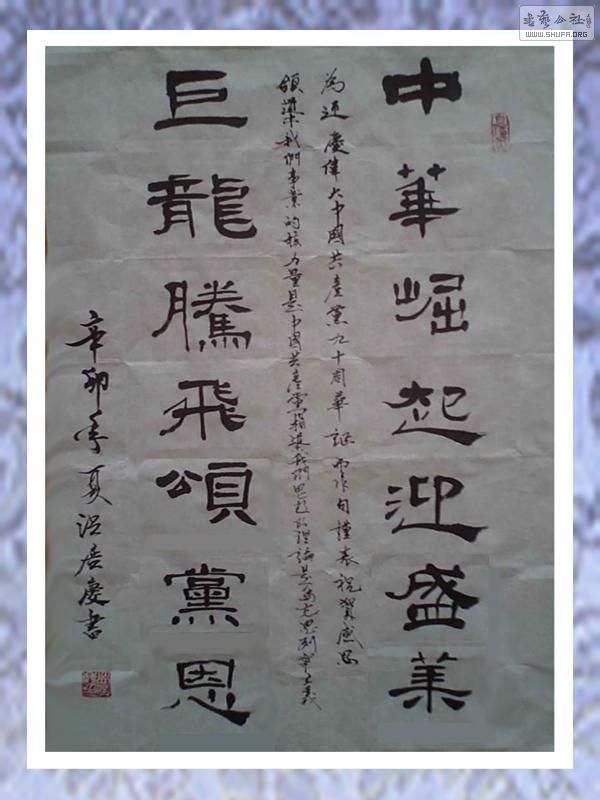 書藝公社
WWW.SHUFA.ORG
中華崛起迎盛業
為迎慶偉大中國共產黨九十周華誕而作句謹表祝賀感恩
領導我們事業的核力量是中國共產黨指導我們思想的理論是馬克思列寧主義
巨龍騰飛頌黨恩
辛卯年夏沼居慶書